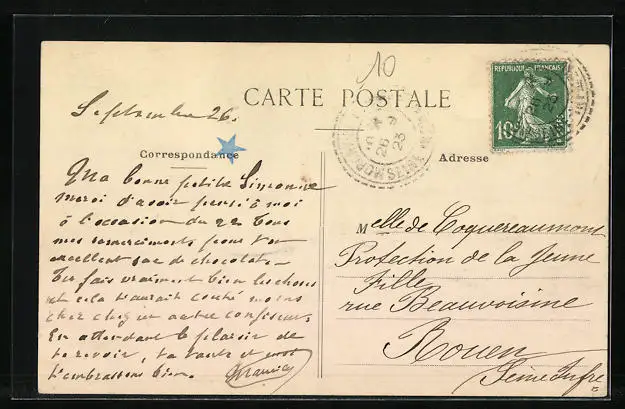 10
Septembre 26.
CARTE POSTALE
REPUBLIQUE FRANÇAISE
10
26
23
Correspondance
Adresse
Ma bonne petite Simonne
merci d'avoir pensé à moi
à l'occasion du 22 Tous
mes remerciements pour ton
excellent sac de chocolat.
Tu fais vraiment bien les choses
et cela t'aurait couté moins
cher chez un autre confiseur.
En attendant le plaisir de
te revoir, ta tante et moi
t'embrassons bien.
Melle de Coquereaumont
Protection de la Jeune
Fille
rue Beauvoisine
Rouen
Seine Infre